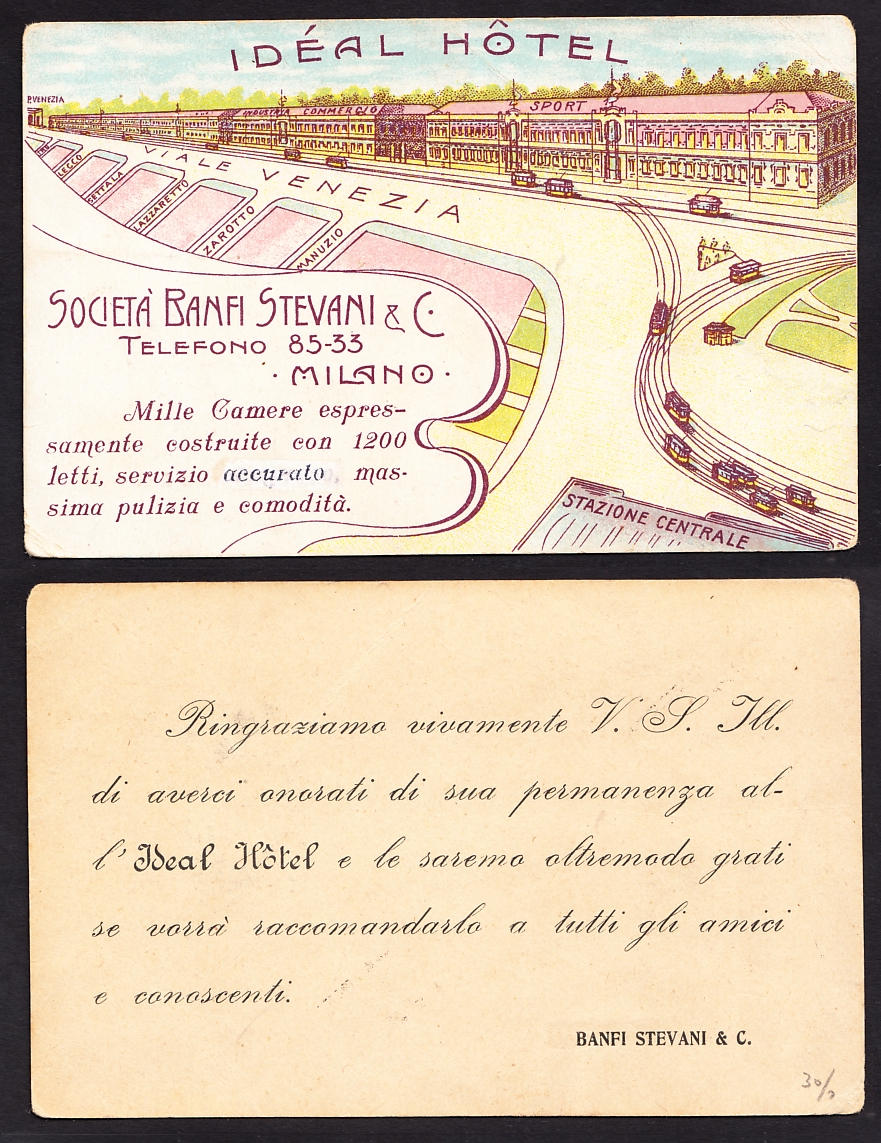 IDÉAL HÔTEL
P. VENEZIA
INDUSTRIA COMMERCIO
SPORT
VIALE VENEZIA
LECCO
SETTALA
LAZZARETTO
ZAROTTO
MANUZIO
SOCIETÀ BANFI STEVANI & C.
TELEFONO 85-33
· MILANO ·
Mille Camere espres-
samente costruite con 1200
letti, servizio accurato, mas-
sima pulizia e comodità.
STAZIONE CENTRALE
Ringraziamo vivamente V. S. Ill.
di averci onorati di sua permanenza al-
l' Ideal Hôtel e le saremo oltremodo grati
se vorrà raccomandarlo a tutti gli amici
e conoscenti.
BANFI STEVANI & C.